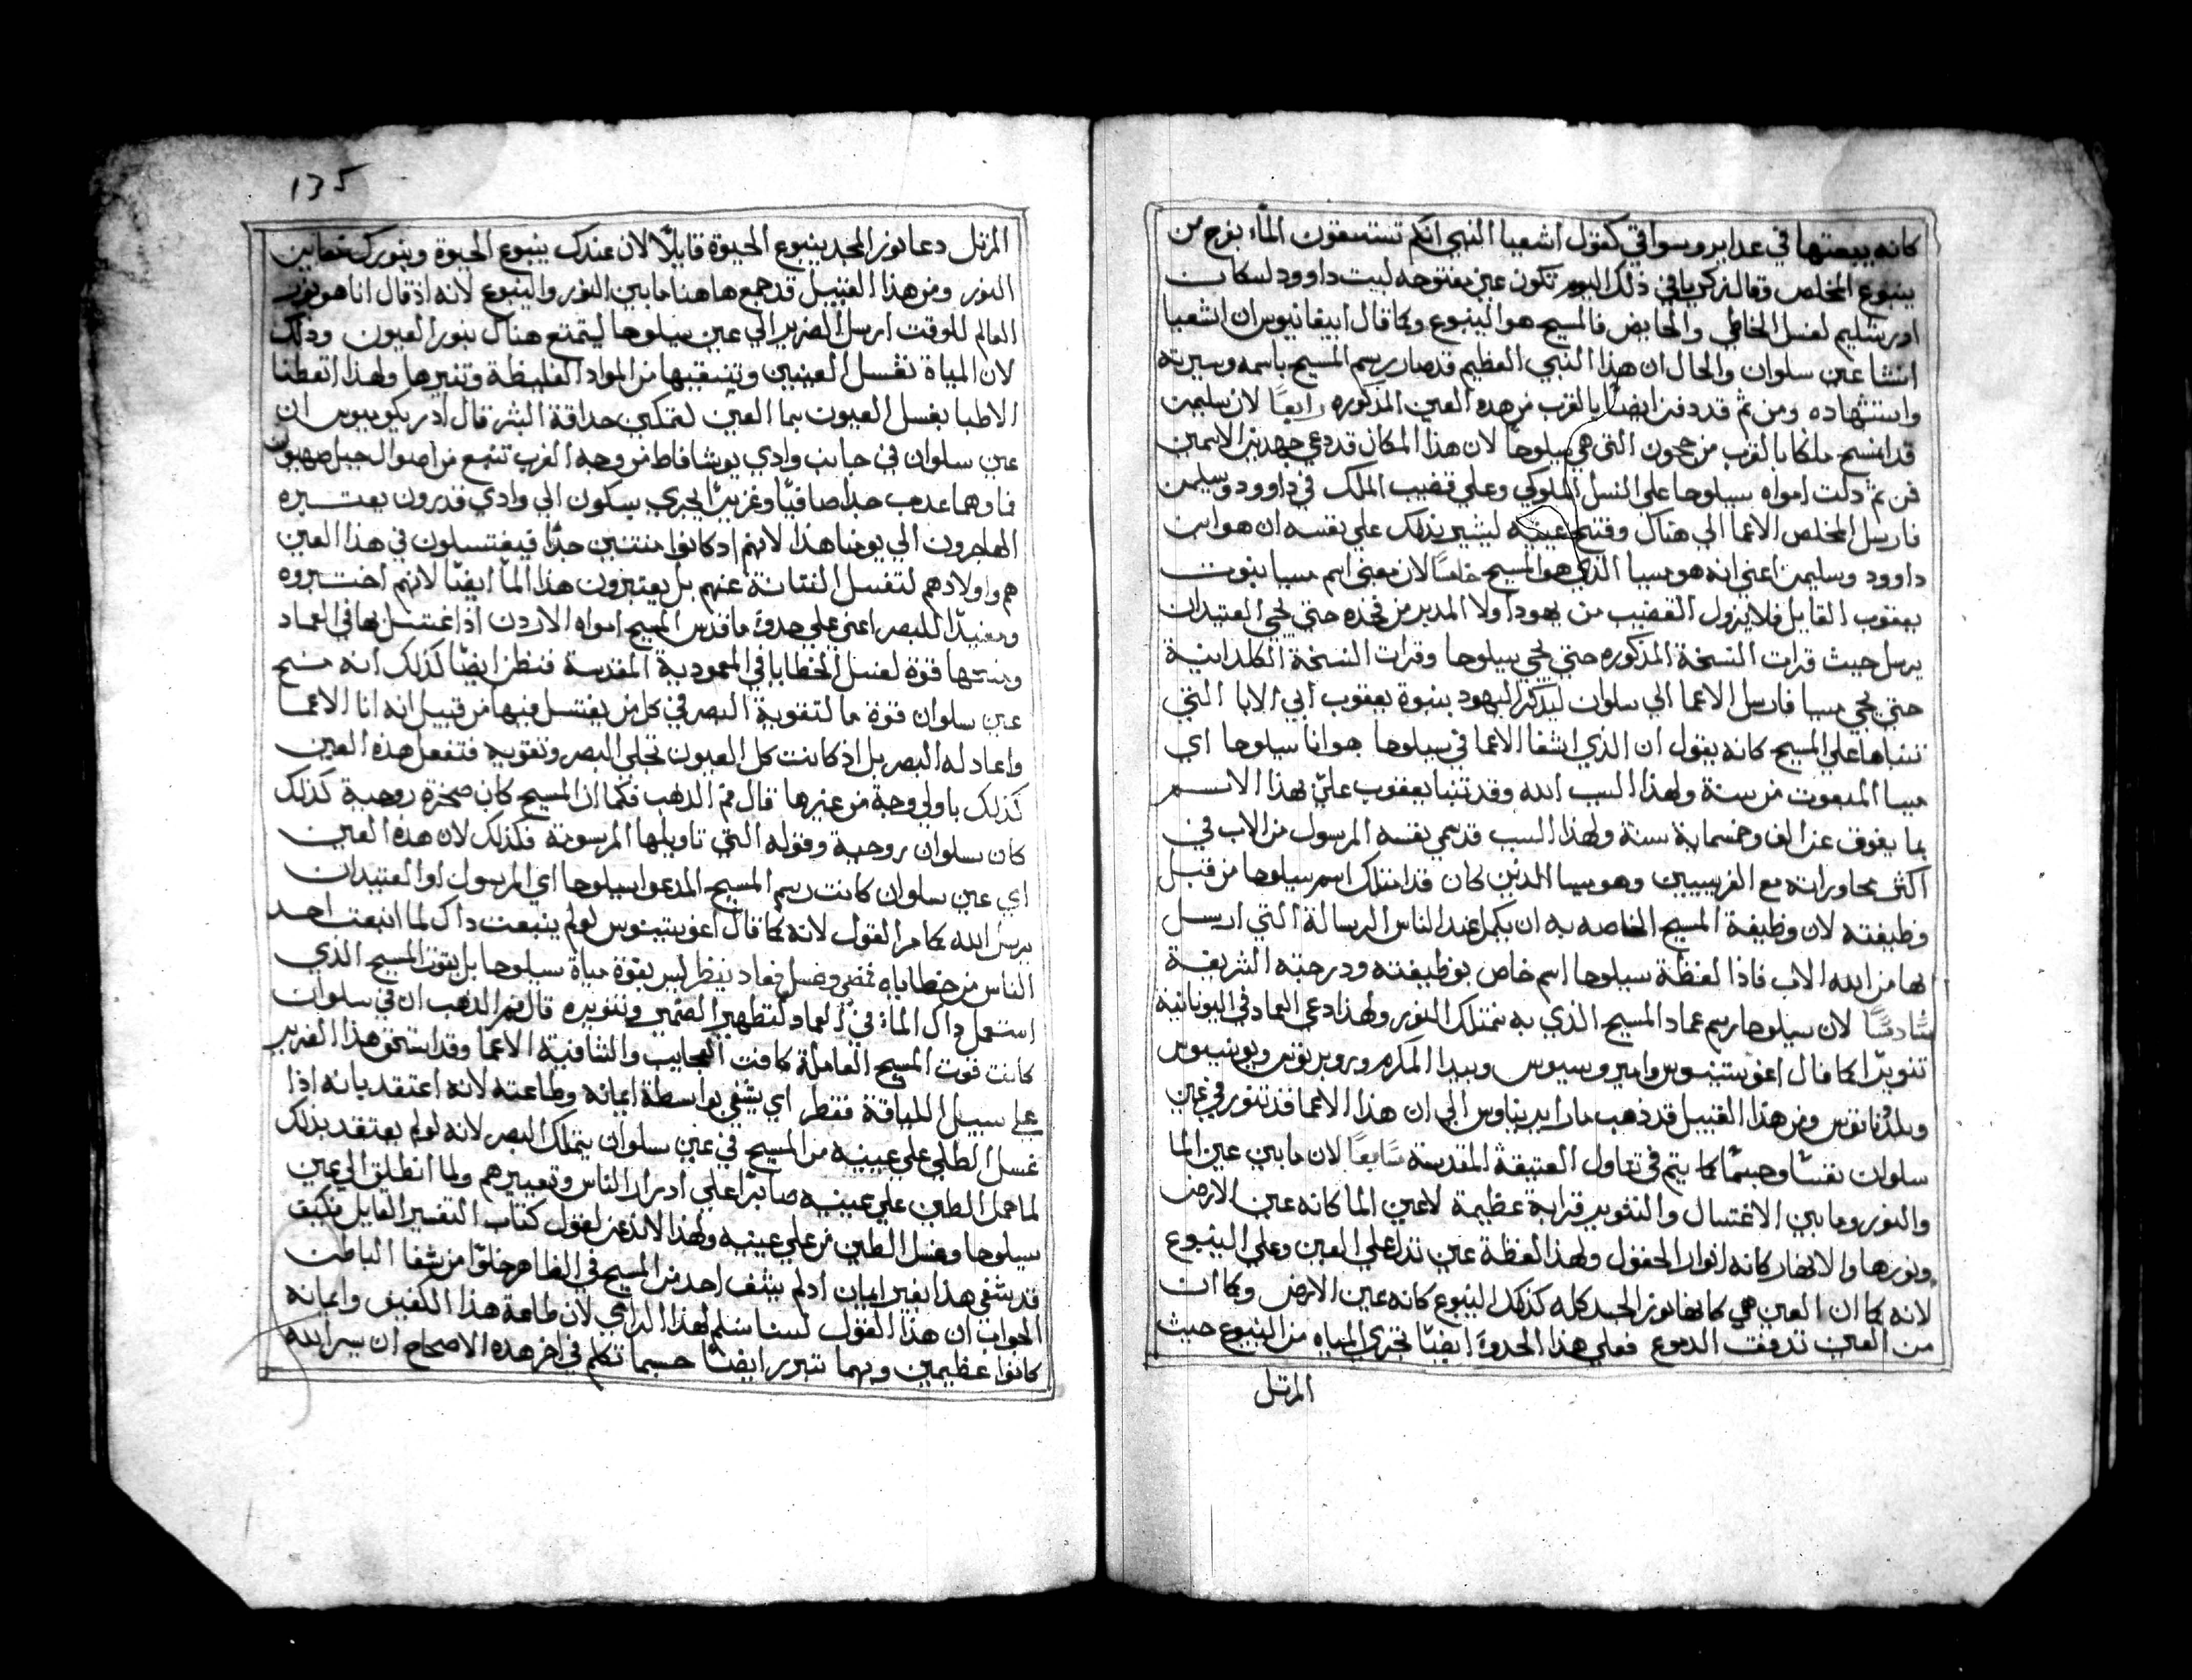 كانه يبعثها في غدايرو سواقي كقول اشعيا النبي انكم تستسقون المآء بفرح من
ينبوع المخلص وقال زكريا في ذلك اليوم تكون عين مفتوحه لبيت داوود لسكان
اورشليم لغسل الخاطي والحايض فالمسيح هو الينبوع وكما قال ابيفانيوس ان اشعيا
انشا عين سلوان والحال ان هذا النبي العظيم قد صار رسم المسيح باسمه وسيرته
واستشهاده ومن ثم قد دفن ايضًا بالقرب من هذه العين المذكوره رابعًا لان سليمن
قد انمسح ملكا بالقرب من جحون التي هي سيلوحا لان هذا المكان قد دعي بهذين الاسمين
فمن ثم دلت امواه سيلوحا علي النسل الملوكي وعلي قضيب الملك في داوود وسليمن
فارسل المخلص الاعما الي هناك وفتح عينيه ليشير بذلك علي نفسه ان هو ابن
داوود وسليمن اعني انه هو مسيا الذي هو المسيح خامسًا لان معني اسم مسيا بنبوت
يعقوب القايل فلا يزول القضيب من يهودا ولا المدبر من فخذه حتي يجي العتيد ان
يرسل حيث قرات النسخة المذكوره حتي يجي سيلوحا وقرات النسخة الكلدانية
حتي يجي مسيا فارسل الاعما الي سلوان ليذكر اليهود بنبوة يعقوب ابي الابا التي
تنباها علي المسيح كانه يقول ان الذي اشفا الاعما في سيلوحا هو انا سيلوحا اي
مسيا المبعوث من الله ولهذا السبب الله وقد تنبا يعقوب عليّ بهذا الاسم
بما يفوق عن الف وخمسماية سنة ولهذا السبب قد سمي نفسه المرسول من الاب في
اكثر محاوراته مع الفريسيين وهو مسيا الذي كان قد امتلك اسم سيلوحا من قبل
وظيفته لان وظيفة المسيح الخاصه به ان يكمل عند الناس الرسالة التي ارسل
بها من الله الاب فاذا لفظة سيلوحا اسم خاص بوظيفته ودرجته الشريفة
سادسًا لان سيلوحا رسم عماد المسيح الذي به نمتلك النور ولهذا دعي العماد في اليونانية
تنويرًا كما قال اغوستينوس وامبروسيوس وبيدا المكرم وروبرتوس ويوبنيوس
وملدناتوس ومن هذا القبيل قد ذهب ماري ايريناوس الي ان هذا الاعما قد تنور في عين
سلوان نفسًا وجسمًا كما يتم في تفاول العتيقة المقدسة سابعًا لان ما بين عين الما
والنور وما بين الاغتسال والتنوير قرابة عظيمة لاعين الما كانه عين الارض
ونورها والانهار كانه انوار الحقول ولهذا لفظة عين تدل علي العين وعلي الينبوع
لانه كما ان العين هي كانها نور الجسد كله كذلك الينبوع كانه عين الارض وكما ان
من العين تدفقت الدموع فعلي هذا الحذو ايضًا تجري المياه من الينبوع حيث
المرتل
135
المرتل دعا نور المجد ينبوع الحيوة قايلًا لان عندك ينبوع الحيوة وبنورك نعاين
النور ومن هذا القبيل قد جمع هاهنا ما بين النور والينبوع لانه اذ قال انا هو نور
العالم للوقت ارسل الضرير الي عين سيلوحا ليتمتع هناك بنور العيون وذلك
لان المياة تغسل العينين وتنقيها من المواد الغليظة وتنيرها ولهذا اتعطنا
الاطبا بغسل العيون بما العين لتمكين حداقة البشر قال ادريكوميوس ان
عين سلوان في جانب وادي يوشافاط من وجه الغرب تنبع من اصوال جبل صهيون
فاوهما عذب جدًا صافيًا وغزير الجري بسكون الي وادي قدرون يعتبره
الهاجرون الي يومنا هذا لانهم اذ كانوا منتنين جدًا فيغتسلون في هذا العين
هم واولادهم لتغسل النتانة عنهم بل يعتبرون هذا المآ ايضًا لانهم اختبروه
ومفيدًا للبصر اعني علي حدوة ما قدس المسيح امواه الاردن اذ اغتسل بها في العماد
ومنحها قوة لغسل الخطايا في المعمودية المقدسة فنظن ايضًا كذلك انه منح
عين سلوان قوة ما لتقوية البصر في كل من يغتسل فيها من قبيل انه انا الاعما
واعاد له البصر بل اذ كانت كل العيون تجلي البصر وتقويه فتفعل هذه العين
كذلك باولي وجه من غيرها قال فم الذهب فكما ان المسيح كان صخرة روحية كذلك
كان سلوان روحية وقوله التي تاويلها المرسولة فكذلك لان هذه العين
اي عين سلوان كانت رسم المسيح المدعو سيلوحا اي المرسول او العتيد ان
يرسل الله كما مر القول لانه كما قال اغوستينوس لو لم ينبعث ذاك لما انبعث احد
الناس من خطاياه فمضي وغسل فعاد ينظر ليس بقوة مياة سيلوحا بل بقوت المسيح الذي
استعمل ذاك الماء في العماد لتطهير الضمير وتنويره قال فم الذهب ان في سلوان
كانت قوت المسيح العاملة كافت العجايب والشافية الاعما وقد استحق هذا الضرير
علي سبيل اللياقة فقط اي يشفي بواسطة ايمانه وطاعته لانه اعتقد بانه اذا
غسل الطلي علي عينيه من المسيح في عين سلوان يتملك البصر لانه لو لم يعتقد بذلك
لما حمل الطين علي عينيه صابرًا علي ادرار الناس وتعييرهم ولما انطلق الي عين
سيلوحا وغسل الطين من علي عينيه ولهذا لا نذعن لقول كتاب التفسير القايل فكيف
قد يشفي هذا بغير ايمان اذ لم يشف احد من المسيح في الظاهر خلوًا من شفا الباطن
الجواب ان هذا القول لسنا نسلم لهذا الراي لان طاعة هذا الكفيف وايمانه
كانوا عظيمين وبهما تبرر ايضًا حسبما تكلم في اخر هذه الاصحاح ان سر الله